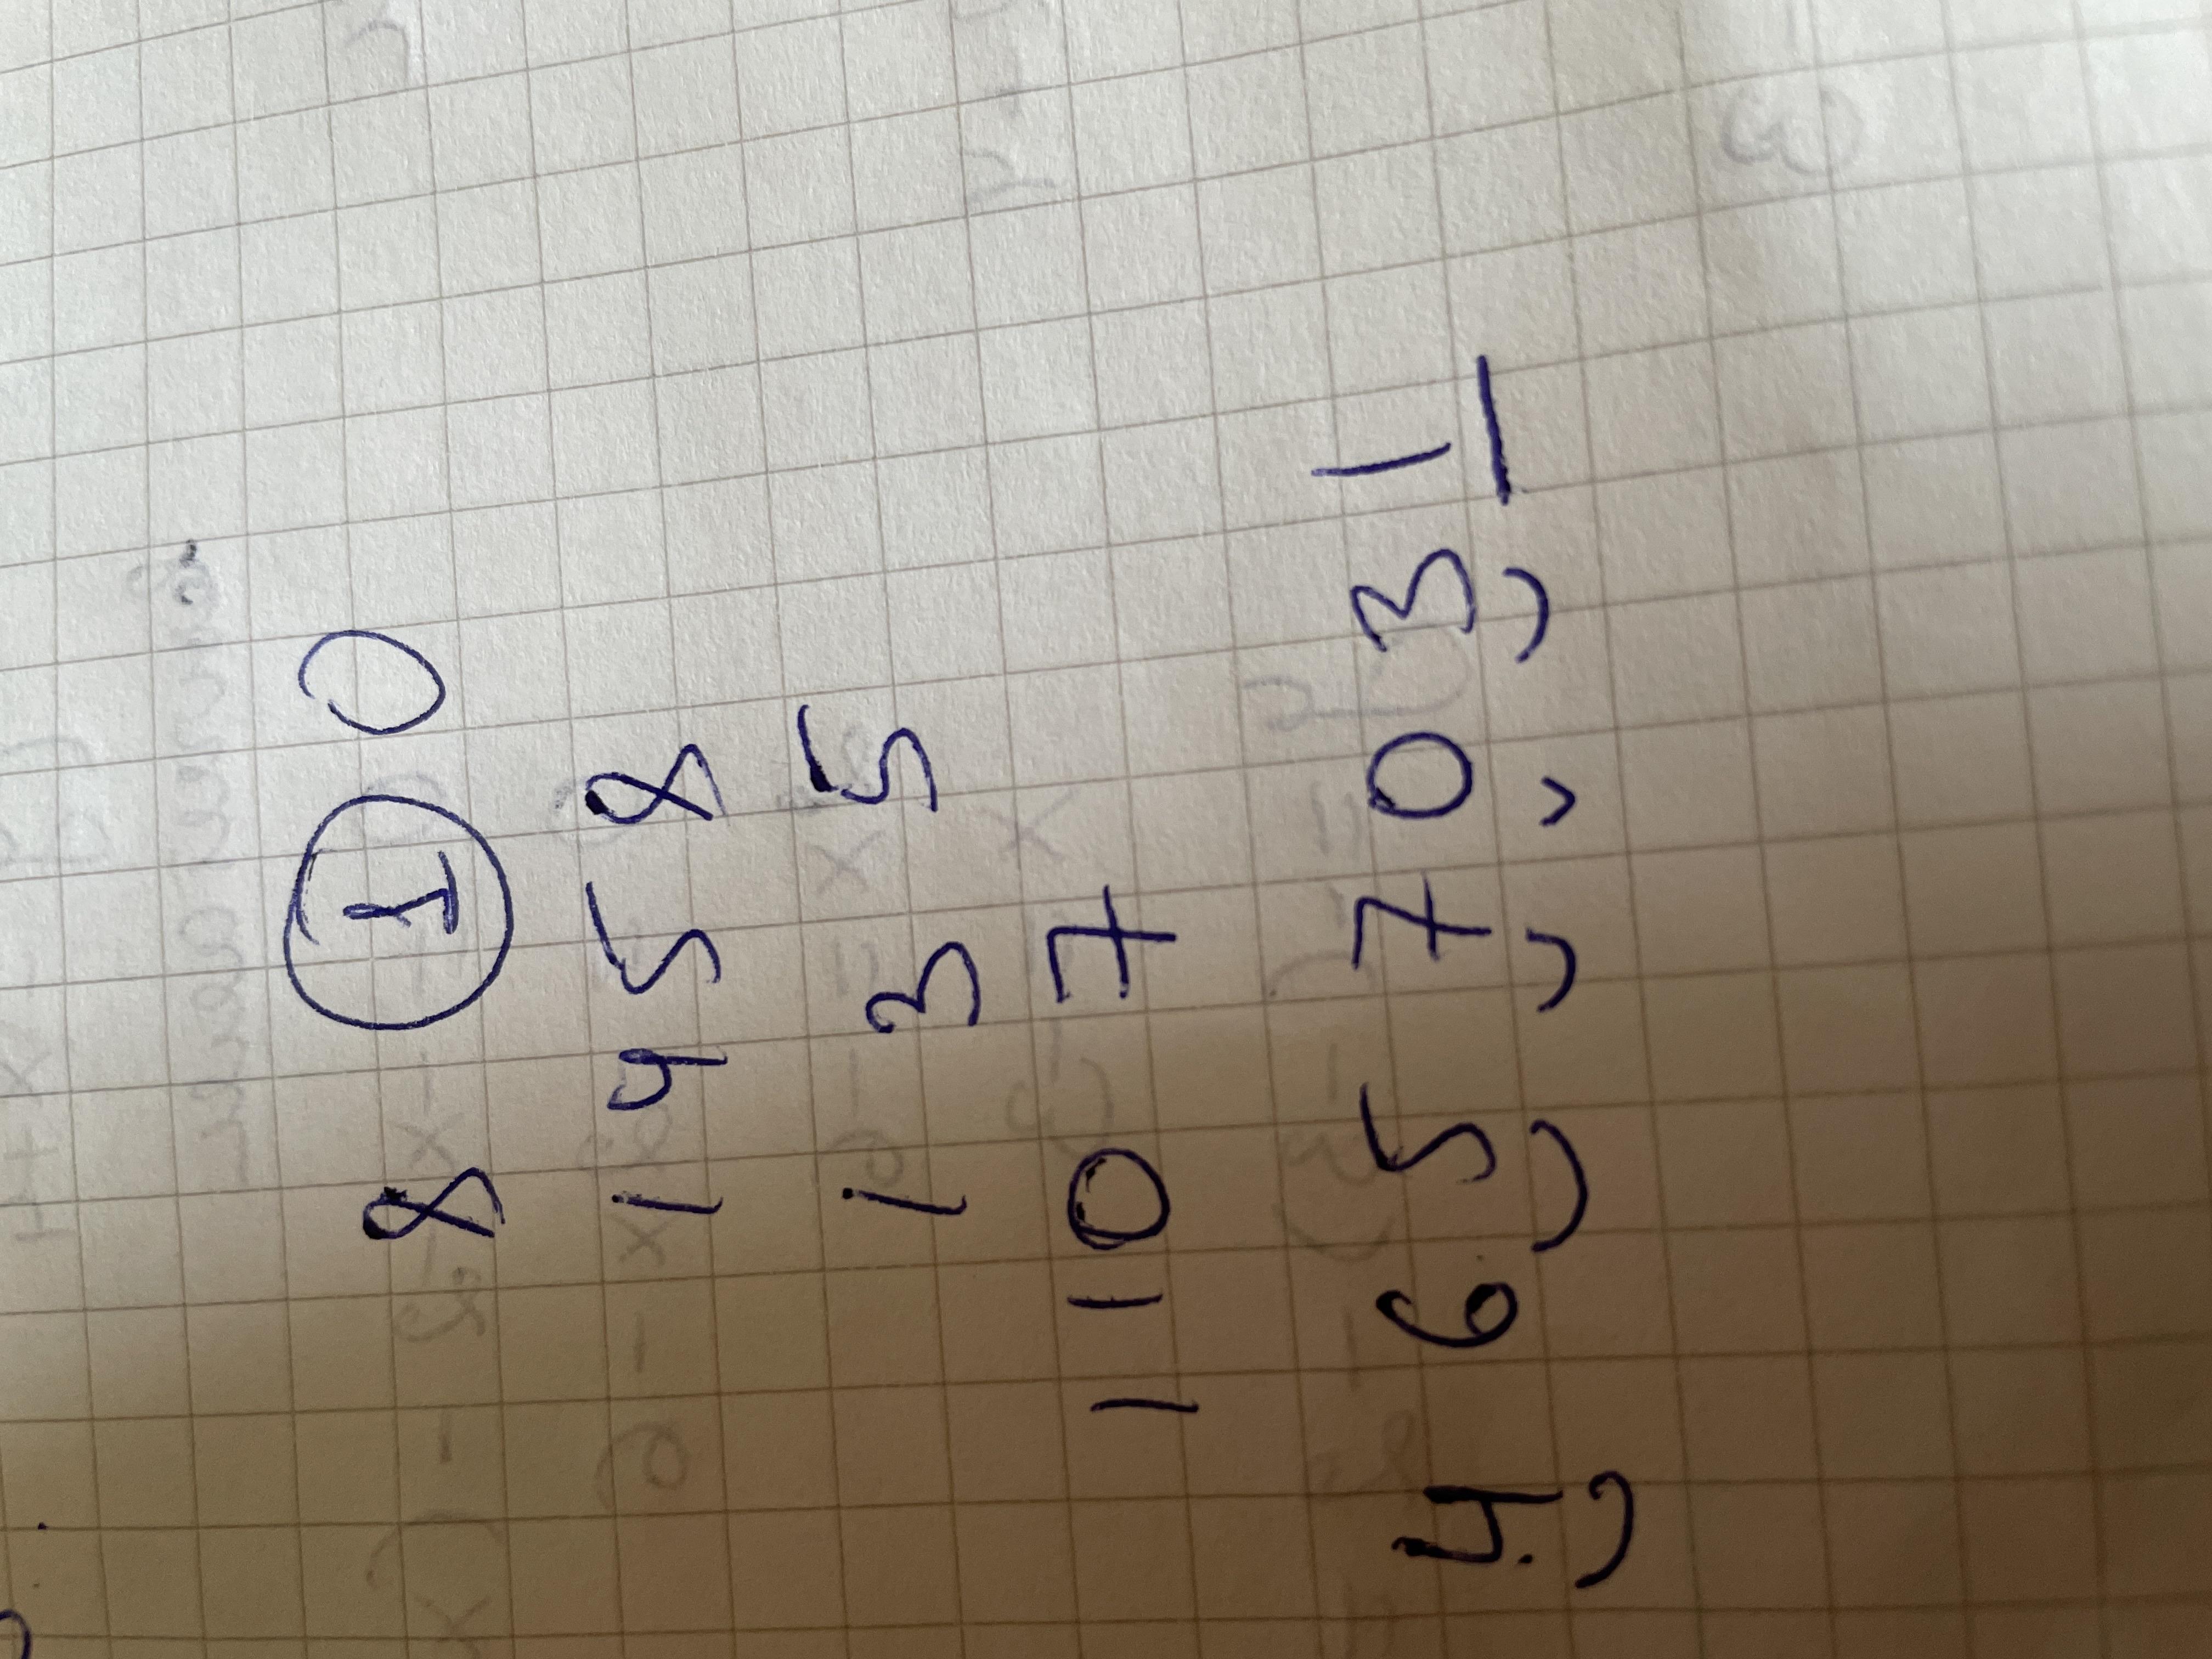 8 1 0
1 9 5 8
1 3 5
1 1 0 7
4, 6 5, 7, 0, 3, 1